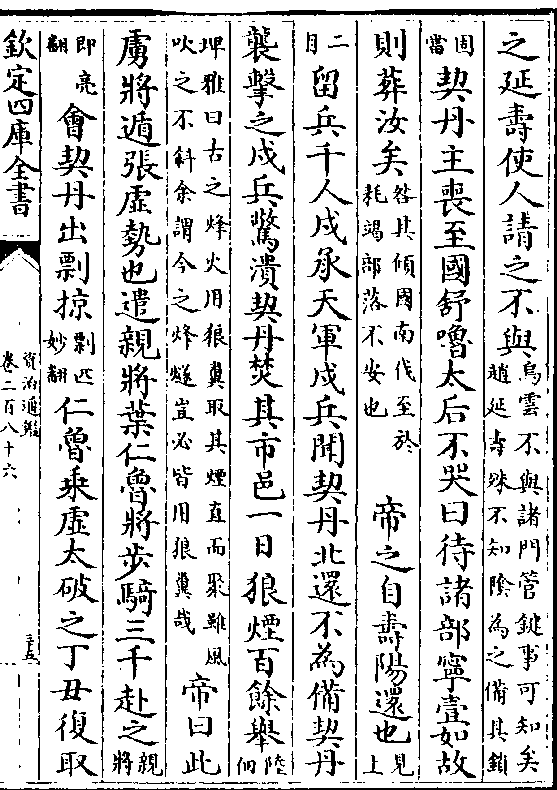 之延壽使人請之不與烏雲不與諸門管鍵事可知矣
趙延壽殊不知陰為之備其鎖
固當契丹主喪至國舒嚕太后不哭曰待諸部寧壹如故
則葬汝矣咎其傾國南伐至於
耗竭部落不安也帝之自壽陽還也見上
二月留兵千人戍承天軍戍兵聞契丹北還不為備契丹
襲擊之戍兵驚潰契丹焚其市邑一日狼煙百餘舉陸佃
埤雅曰古之烽火用狼糞取其煙直而聚雖風
吹之不斜余謂今之烽燧豈必皆用狼糞哉帝曰此
虜將遁張虛勢也遣親將葉仁魯將步騎三千赴之親將
即亮翻會契丹出剽掠剽匹妙翻仁魯乘虛大破之丁丑復取
欽定四庫全書
資治通鑑
卷二百八十六
三五